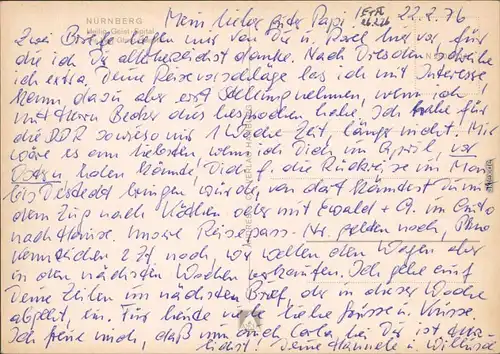 NÜRNBERG
Heilig-Geist-Spital
Mein lieber guter Papi, 22.2.76
Zwei Briefe liegen mir von Dir u. vor, für
die ich Dir allerherzlichst danke. Nach Dresden schreibe
ich extra. Deine Reisevorschläge las ich mit Interesse
kann dazu aber erst Stellung nehmen, wenn ich
mit Herrn Becher dies besprochen habe! Ich habe für
die DDR sowieso nur 1 Woche Zeit, länger nicht. Mir
wäre es am liebsten, wenn ich Dich im April, vor
Ostern, holen könnte! Dich f. die Rückreise im Mai
bis bringen würde, von dort könntest Du mit
dem Zug nach Köthen oder mit Ewald + A. im Auto
nach Hause. Unsere Reisepass-Nr. gelten noch,
kennzeichen z. Zt. noch, wir wollen den Wagen aber
in den nächsten Wochen verkaufen. Ich gehe auf
Deine Zeilen im nächsten Brief, der in dieser Woche
abgeht, ein. Für heute viele liebe Grüsse u. Küsse.
Ich freue mich, daß nun auch Carla bei Dir ist
lichst! Deine Hannele u.